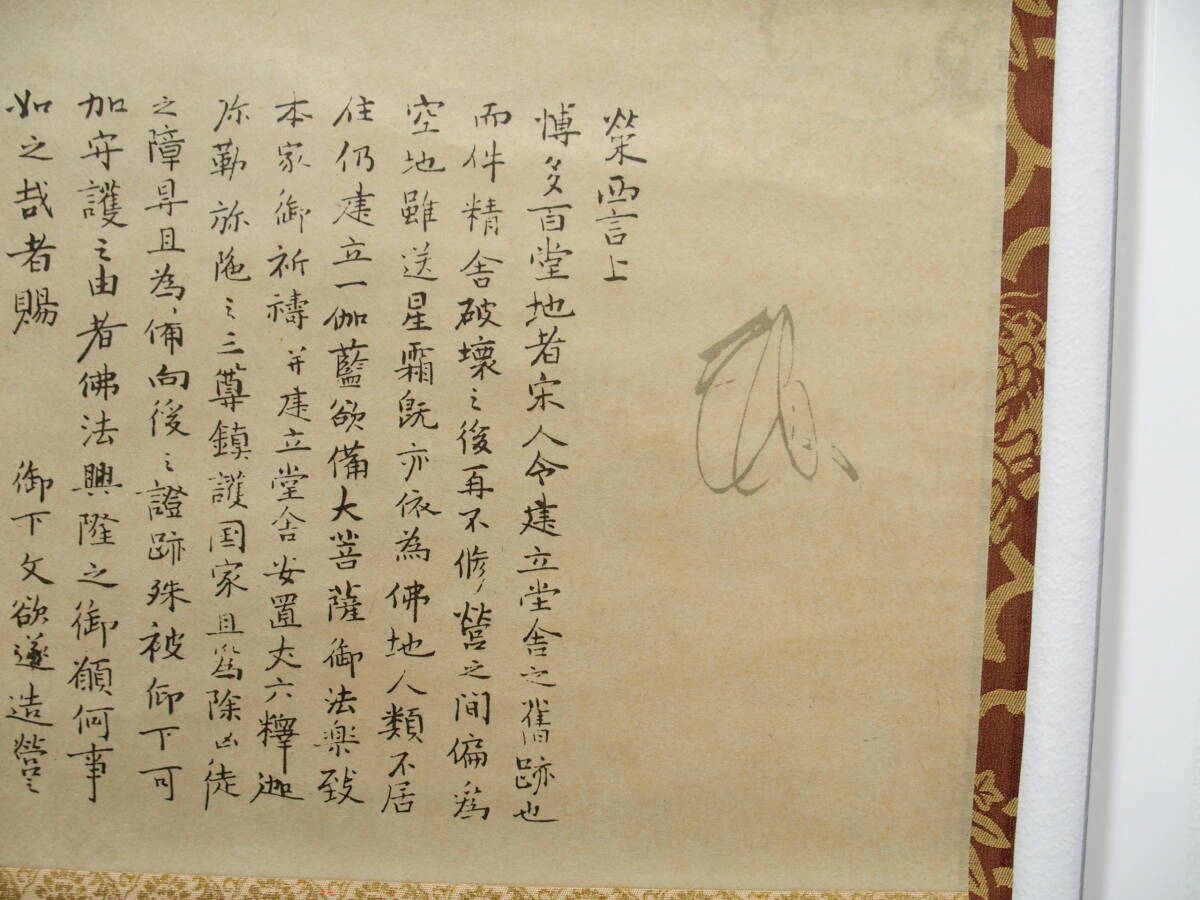 榮西言上
博多百堂地者宋人令建立堂舎之舊跡也
而件精舎破壊之後再不修營之間偏為
空地雖送星霜既亦依為佛地人類不居
住仍建立一伽藍欲備大菩薩御法楽致
本家御祈禱并建立堂舎安置丈六釋迦
弥勒弥陀之三尊鎮護国家且為除凶徒
之障导且為備向後之證跡殊被仰下可
加守護之由者佛法興隆之御願何事
如之哉者賜 御下文欲遂造營之